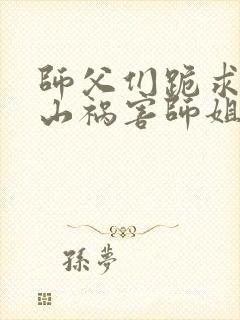 師父们跪求
山祸害師姐
孫夢